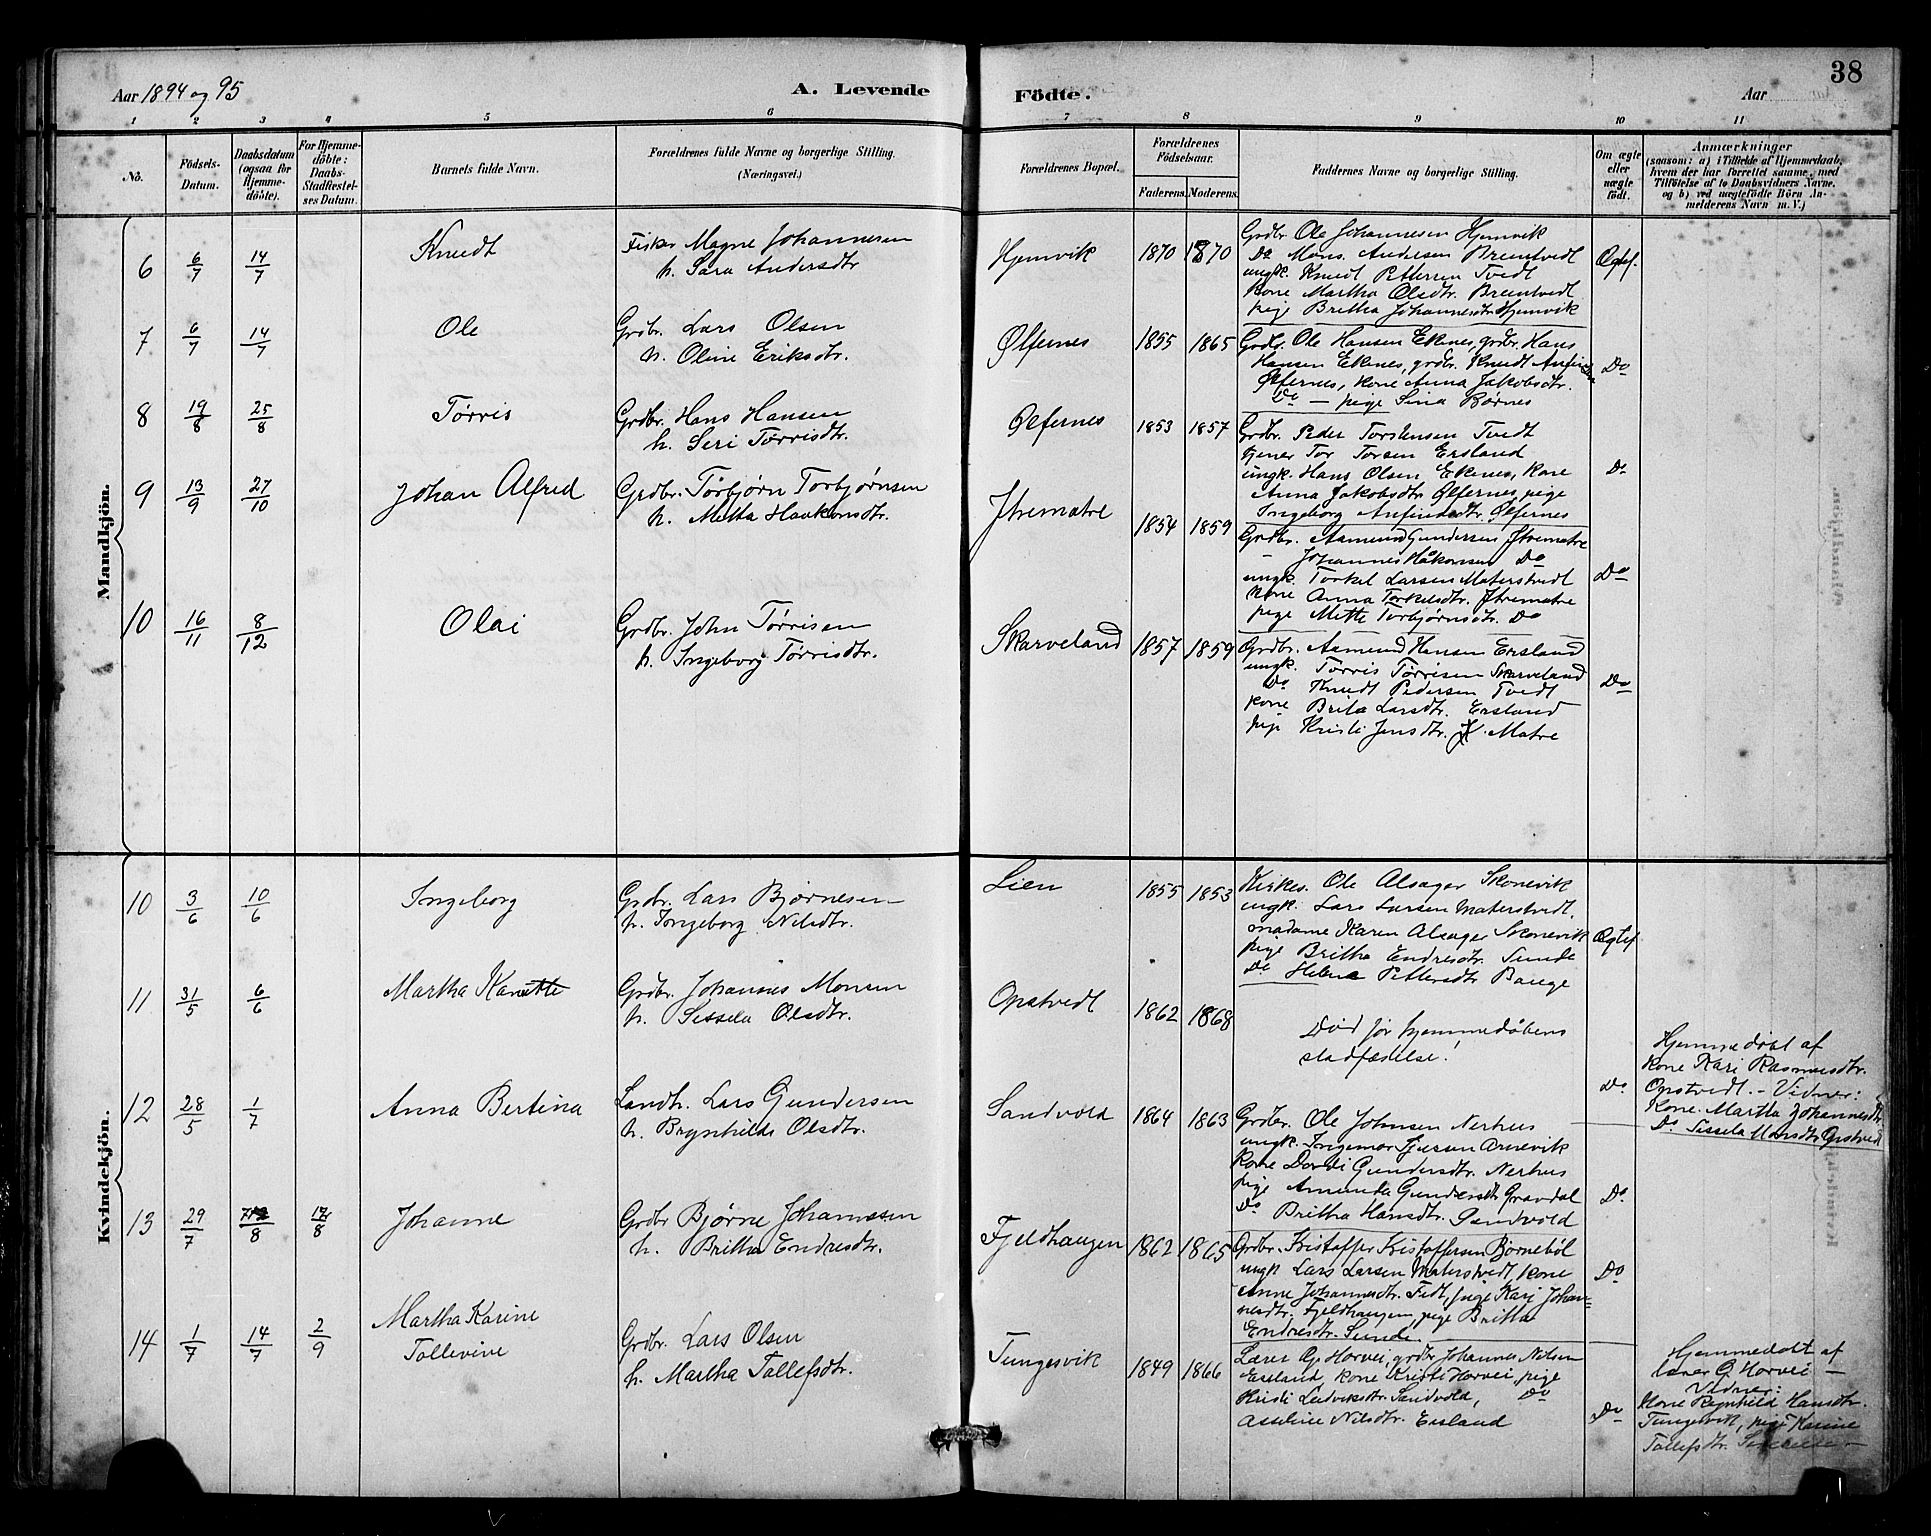 Aar 1894 og 95
A. Levende Födte.
Aar
38
1 2 3 4 5 6 7 8 9 10 11
No.
Födsels-Datum.
Daabsdatum (ogsaa for Hjemme-döbte).
For Hjemme-döbte: Daabs-Stadfæstel-ses Datum.
Barnets fulde Navn.
Forældrenes fulde Navne og borgerlige Stilling. (Næringsvei.)
Forældrenes Bopæl.
Forældrenes Födselsaar.
Faderens. Moderens.
Faddernes Navne og borgerlige Stilling.
Om ægte eller uægte födt.
Anmærkninger
(saasom: a) i Tilfælde af Hjemmedaab,
hvem der har forrettet samme, med
Tilföielse af to Daabsvidners Navne,
og b) ved uægtefödte Börn An-
melderens Navn m. V.)
Mandkjön.
6 6/7 14/7 Knudt
Fisker Magne Johannesen
h. Sara Andersdtr
Hjemvik 1870 1870
Grdbr Ole Johannesen Hjemvik
Do Mons Andersen Breitvedt
ungk. Knudt Pettersen Tvedt
kone Martha Olsdtr. Breitvedt
pige Britha Johannesdtr Hjemvik
Ægtef.
7 6/7 14/7 Ole
Grdbr. Lars Olsen
h. Oline Eriksdtr.
Ølfernes 1855 1865
Grdbr. Ole Hansen Eknes, grdbr. Hans
Hansen Ekenes, grdbr. Knudt Anfin
Ølfernes, kone Anna Jakobsdtr.
Do — pige Sina Børnes
Do
8 19/8 25/8 Tørris
Grdbr. Hans Hansen
h. Seri Tørrisdtr.
Ølfernes 1853 1857
Grdbr. Peder Torstensen Tvedt
tjener Tor Torsen Ersland
ungk. Hans Olsen Ekenes, kone
Anna Jakobsdtr Ølfernes, pige
Ingeborg Anfinsdtr. Ølfernes
Do
9 13/9 27/10 Johan Alfred
Grdbr. Torbjørn Torbjørnsen
h. Metta Haakonsdtr.
Ytrematre 1854 1859
Grdbr. Aamund Gundersen Ytrematre
- Johannes Håkonsen Do
ungk. Torkel Larsen Materstvedt
kone Anna Torkelsdtr. Ytrematre
pige Mette Torbjørnsdtr. Do
Do
10 16/11 8/12 Olai
Grdbr. John Tørrisen
h. Ingeborg Tørrisdtr.
Skarveland 1857 1859
Grdbr. Aamund Hansen Ersland
ungk. Tørris Tørrisen Skarveland
Do Knudt Pedersen Tvedt
kone Brita Larsdtr. Ersland
pige Kristi Jensdtr. Y. Matre
Do
Kvindekjön.
10 3/6 10/6 Ingeborg
Grdbr. Lars Bjørnesen
h. Ingeborg Nilsdtr.
Lien 1855 1853
Kirkes. Ole Alsager Skonevik
ungk. Lars Larsen Materstvedt,
madame Karen Alsager Skonevik
pige Britha Endresdtr. Sunde
Do Helena Pettersdtr Bauge
Ægtef
11 31/5 6/6 Martha Kanutte
Grdbr. Johannes Monsen
h. Sessela Olsdtr.
Opstvedt 1862 1868
Død før hjemmedåbens
stadfæstelse!
Do
Hjemmedöbt af
kone Kari Rasmusdtr.
Opstvedt. - Vidner:
Kone Martha Johannesdtr.
Do Sessela Monsdtr Opstvedt
12 28/5 1/7 Anna Bertina
Landh. Lars Gundersen
h. Brynhilda Olsdtr.
Sandvold 1864 1863
Grdbr. Ole Johnsen Nerhus
ungk. Ingemor Arnevik
kone Dordi Gundersdtr. Nerhus
pige Amunda Gundersdtr Gravdal
Do Britha Hansdtr. Sandvold
Do
13 29/7 /8 12/8 Johanne
Grdbr Bjørne Johannesen
h. Britha Endresdtr.
Fjeldhaugen 1862 1865
Grdbr. Kristoffer Kristoffersen Bjørneböl
ungk Lars Larsen Materstvedt, kone
Anne Johannesdtr. Fedt, pige Kari Johan=
nesdtr. Fjeldhaugen, pige Britha
Endresdtr. Sunde.
Do
14 1/7 14/7 2/9 Martha Karine
Tollevine
Grdbr. Lars Olsen
h. Martha Tollefsdtr.
Tungesvik 1849 1866
Lærer G. Horvei, grdbr Johannes Nilsen
Ersland, kone Kristi Horvei, pige
Kristi Ludviksdtr. Sandvold, Do
Asseline Nilsdtr. Ersland
Do
Hjemmedøbt af
lærer G. Horvei —
Vidner:
Kone Ragnhild Hansdtr.
Tungesvik, pige Karine
Tollefsdtr.